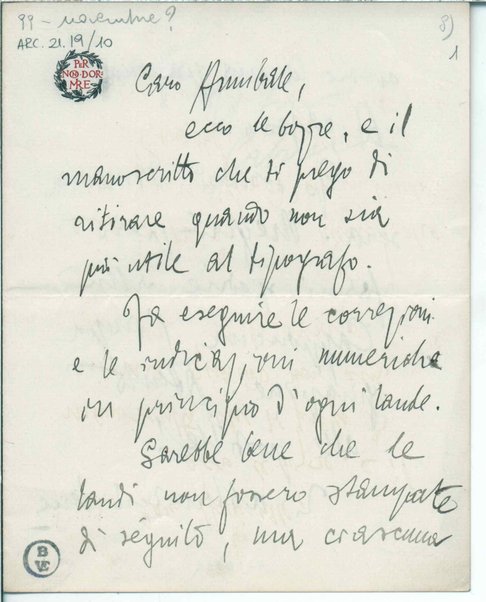 99 - novembre?
ARC. 21. 19/10
1
PER
NON DOR
MIRE
Caro Annibale,
ecco le bozze, e il
manoscritto che ti prego di
ritirare quando non sia
più utile al tipografo.
Fa eseguire le correzioni
e le indicazioni numeriche
in principio d'ogni laude.
Sarebbe bene che le
laudi non fossero stampate
di seguito, ma ciascuna
B
VE